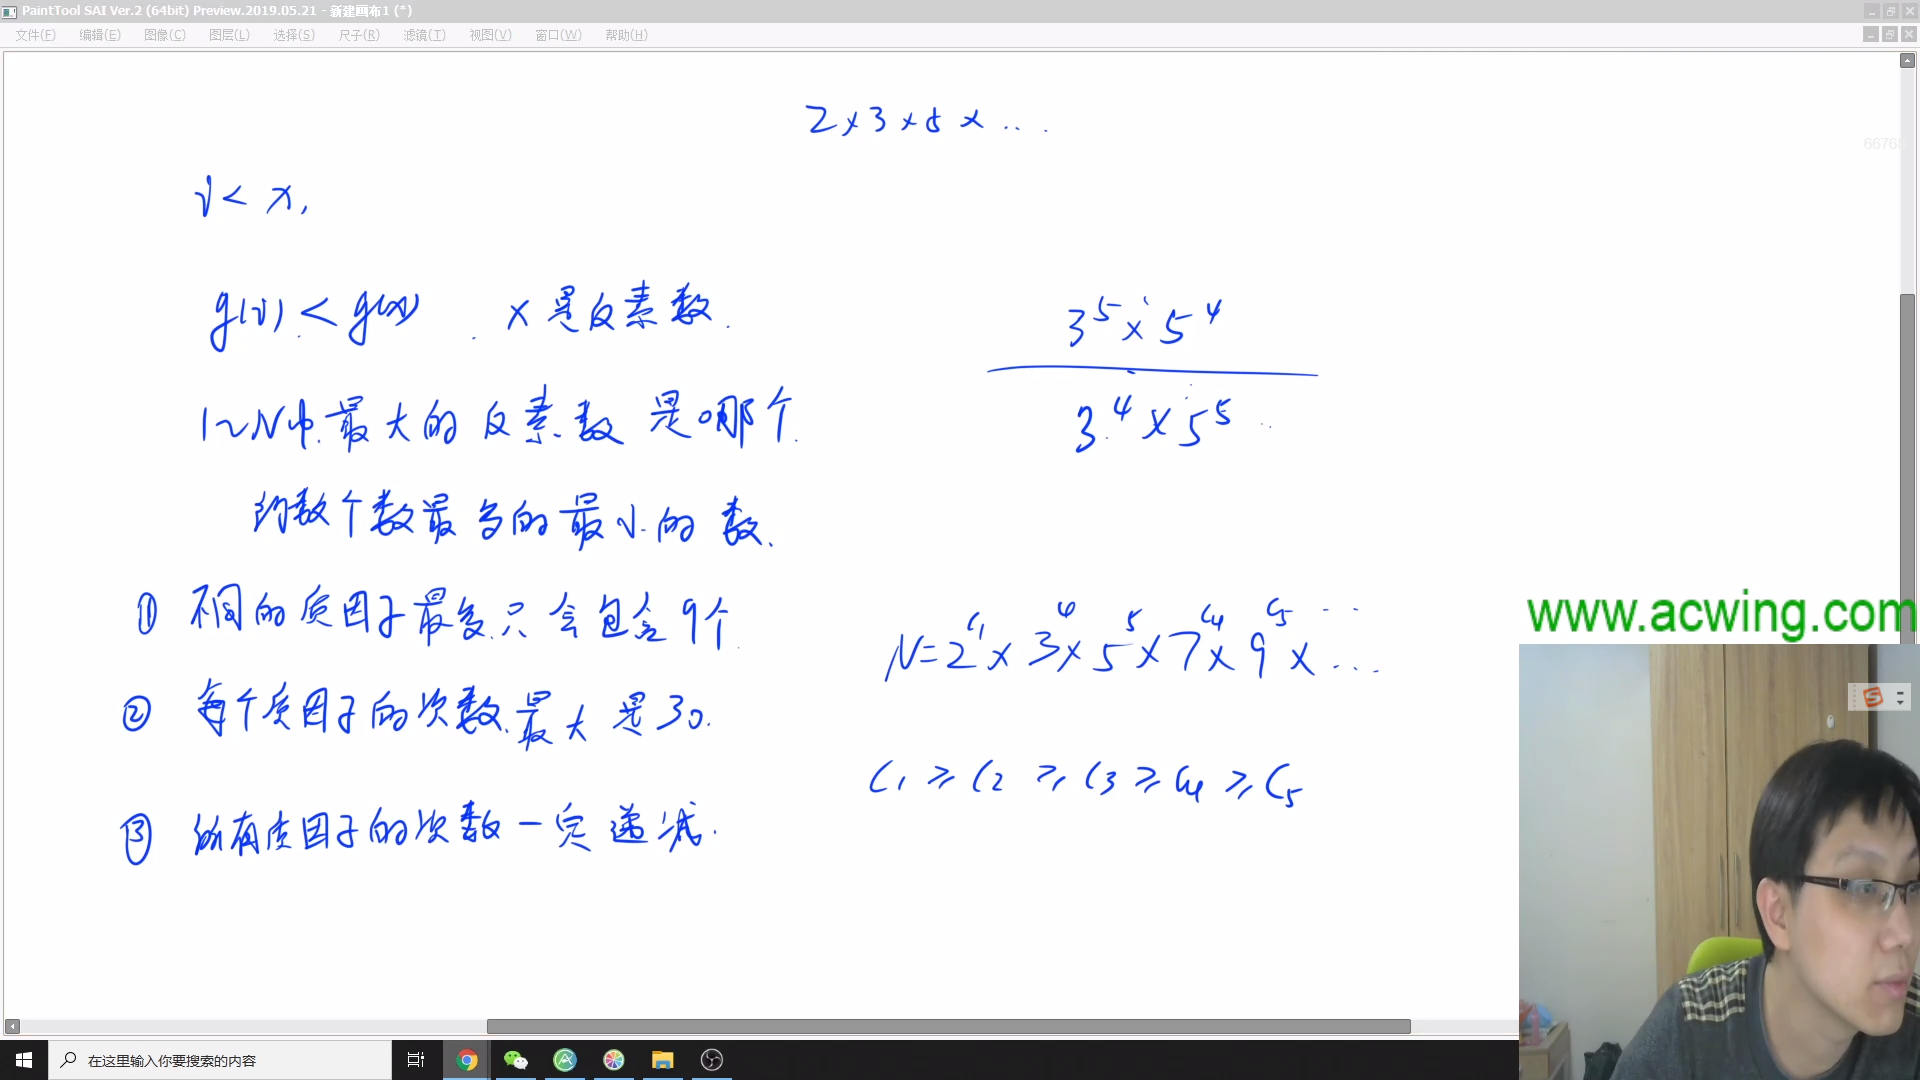 PaintTool SAI Ver.2 (64bit) Preview.2019.05.21 - 新建画布1 (*)
文件(F) 编辑(E) 图像(C) 图层(L) 选择(S) 尺子(R) 滤镜(T) 视图(V) 窗口(W) 帮助(H)
2×3×5×...
66768
i < x,
g(i) < g(x) . x是反素数.
3⁵×5⁴
3⁴×5⁵
1~N中最大的反素数是哪个.
约数个数最多的最小的数.
① 不同的质因子最多只会包含9个.
N=2^c₁ × 3^4 × 5^5 × 7^c₄ × 9^c₅ × ...
② 每个质因子的次数最大是30.
c₁ ≥ c₂ ≥ c₃ ≥ c₄ ≥ c₅
③ 所有质因子的次数一定递减.
www.acwing.com
在这里输入你要搜索的内容